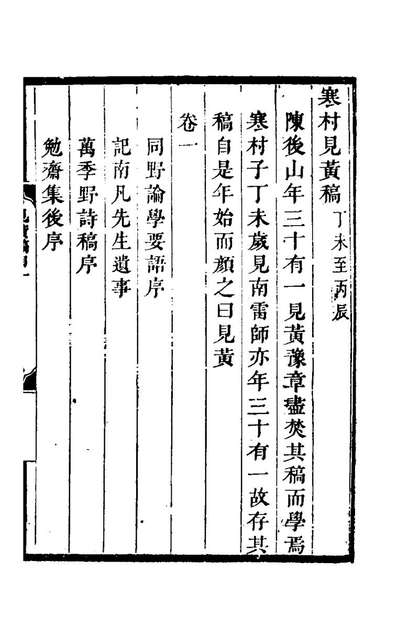 寒村見黃稿 丁未至丙辰
陳後山年三十有一見黃豫章盡焚其稿而學焉
寒村子丁未歲見南雷師亦年三十有一故存其
稿自是年始而顏之曰見黃
卷一
同野論學要語序
記南凡先生遺事
萬季野詩稿序
勉齋集後序